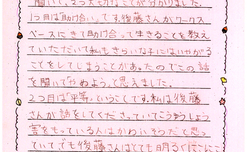 聞いて、2つ大切なことが分かりました。
1つ目は「助け合い」です。後藤さんがワークス
ペースにきて助け合って生きることを教え
ていただいて私もきらいな子にはいやがる
ことをしてしまうことがあったのでこの話
を聞いてやめようって思えました。
2つ目は「平等」ということです。私は後藤
さんが話をしてくださっていてこうゆうしょう
害をもっている人はかわいそうだと思っ
ていて、でも後藤さんはとても明るくにこにこ